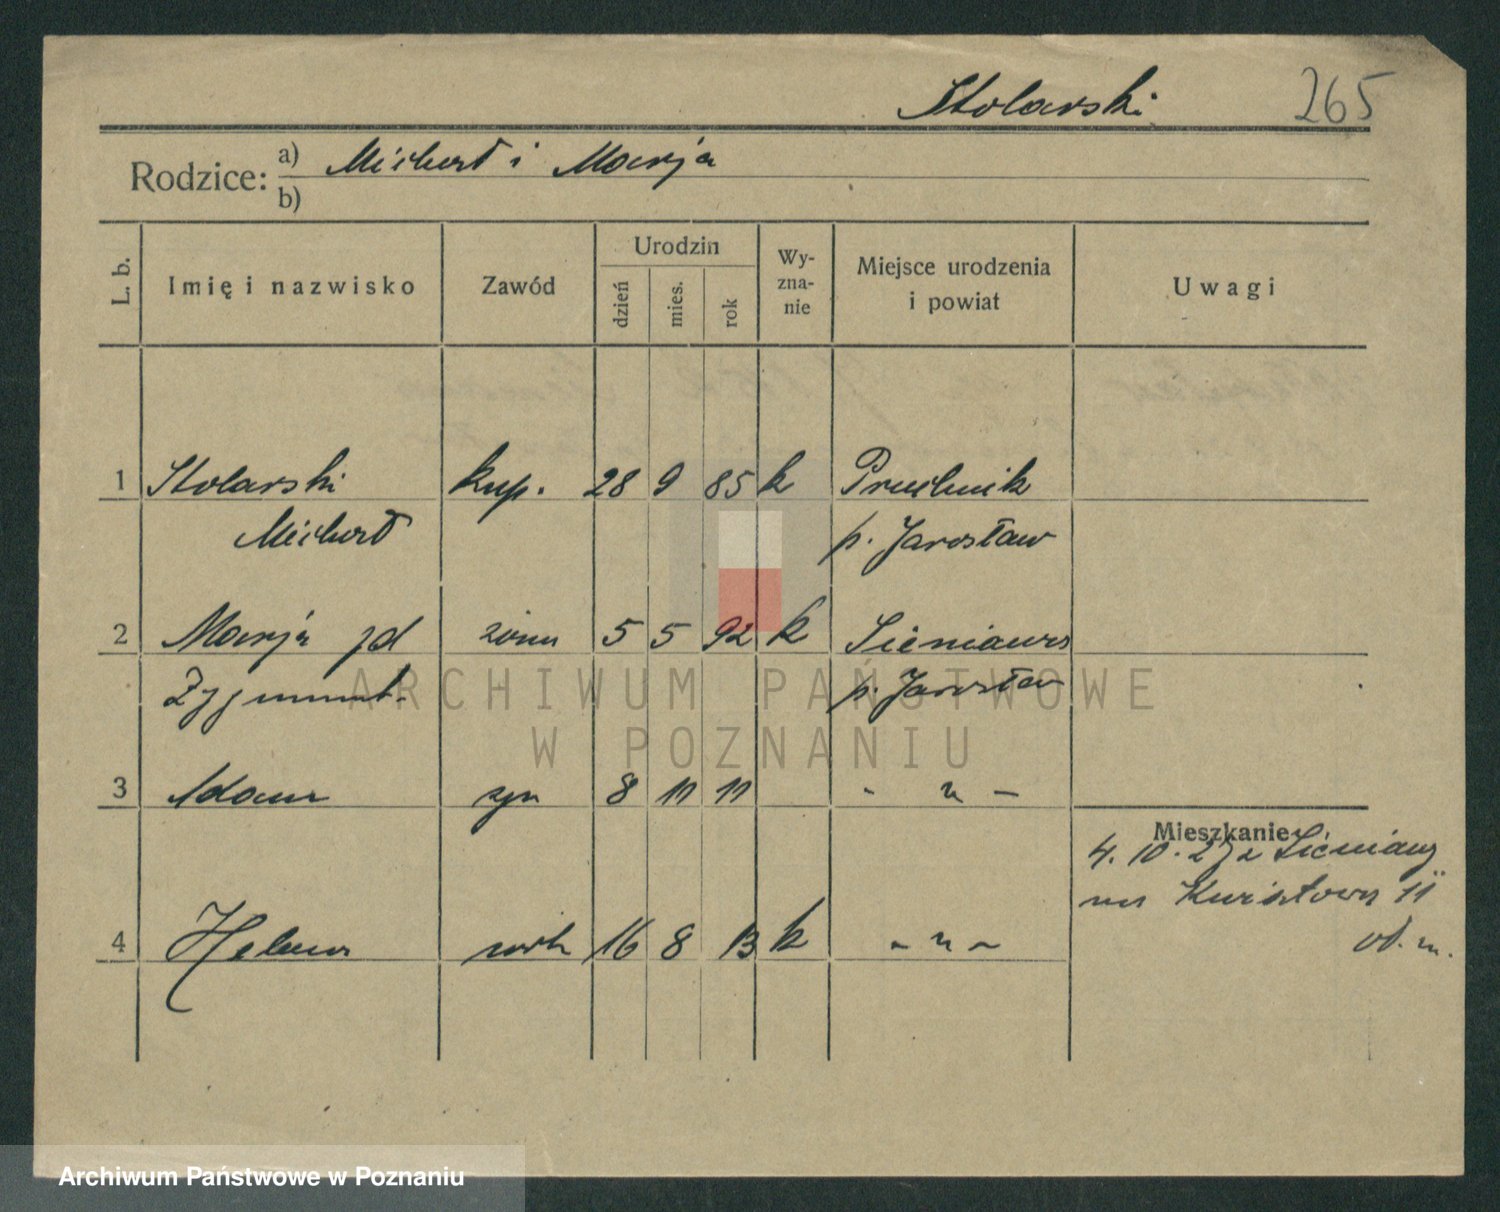 Stolarski 265
Rodzice: a) Michał i Marja
b)
L. b. Imię i nazwisko Zawód Urodzin dzień mies. rok Wyznanie Miejsce urodzenia i powiat Uwagi
1 Stolarski kup. 28 9 85 k Pruchnik
Michał p. Jarosław
2 Marja jd żona 5 5 92 k Sieniawa
Zygmunt p. Jarosław
ARCHIWUM PAŃSTWOWE
W POZNANIU
3 Adam syn 8 11 11 - " -
Mieszkanie:
4. 10. 2 z Sieniawy
na 11
4 Helena 16 8 13 k - " -
Archiwum Państwowe w Poznaniu